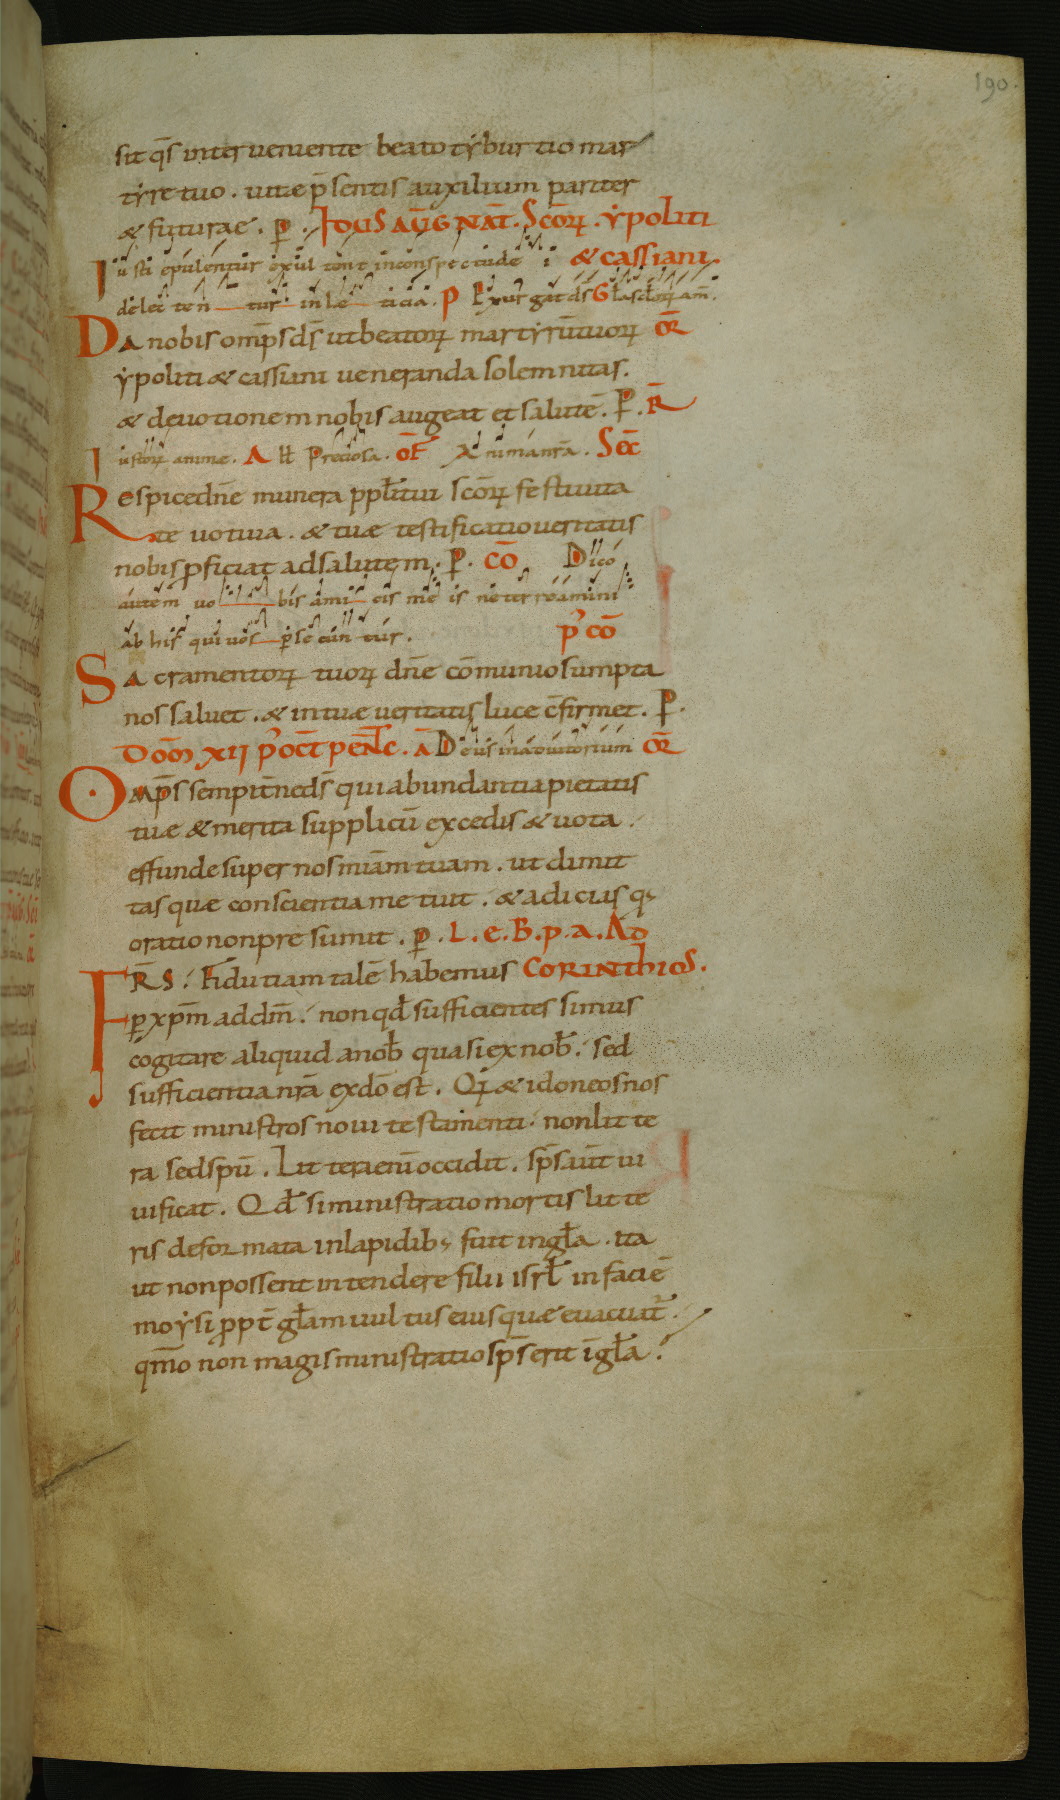 190.
sit q̄s interveniente beato tyburtio mar
tyre tuo . vitae p̄sentis auxilium pariter
& futurae . p̲ . IDUS AŪG NAT̄ . SCŌRꝜ . ẏpoliti
Iusti epulentur exultent in conspectu dei & cassiani
delectentur in laeticia . P Exurgat ds̄ Gła sc̄lorꝝ am̄ .
Da nobis omp̄s ds̄ ut beatorꝝ martyrū tuorꝝ OR̄
ẏpoliti & cassiani veneranda solemnitas .
& devotionem nobis augeat et salutē . P̲ . R̄
Iustorꝝ animae . A ll Preciosa . OF̄ Anima nr̄a . SEC̄
Respice dn̄e munera pplī tui sc̄orꝝ festivita
te votiva . & tuae testificatio veritatis
nobis ꝓficiat ad salutem . P̲ . CŌ Dico
autem vobis amicis meis ne terreamini
ab his qui vos p̲secuntur . P̄ CŌ
Sacramentorꝝ tuorꝝ dn̄e cōmunio sumpta
nos salvet . & in tuae veritatis luce c̄firmet . P̲ .
DOM̄ XII P̄ OCT̄ PENT̄C . Ā Deus in adiutorium OR̄
Omp̄s sempit̄ne ds̄ qui abundantia pietatis
tuae & merita supplicū excedis & vota .
effunde super nos miām tuam . ut dimit
tas quae conscientia metuit . & adicias q;
oratio non presumit . p̲ . L . e . B . p . a . AD
FR̄S : Fidutiam talē habemus CORINTHIOS .
p̲ xp̄m ad dm̄ . non qđ sufficientes simus
cogitare aliquid a nob̄ quasi ex nob̄ . sed
sufficientia nr̄a ex dō est . Qi & idoneos nos
fecit ministros novi testamenti . non litte
ra sed spū . Littera enī occidit . sp̄s aūt vi
vificat . Qđ si ministratio mortis litte
ris deformata in lapidib; fuit in gła . ita
ut non possent intendere filii isrł in faciē
moẏsi ꝓpt̄ głam vultus eius quae evacuat̄ .
qm̄o non magis ministratio sp̄s erit ī gła .